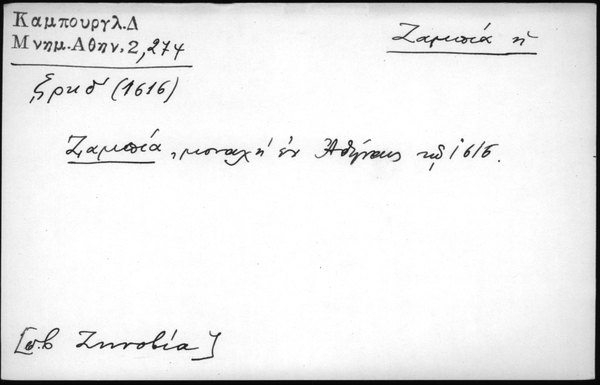 Καμπουργλ.Δ
Μνημ.Αθην. 2, 274
Ζαμπιά ἡ
ζρκδ' (1616)
Ζαμπιά, μοναχὴ ἐν Ἀθήναις τῷ 1616.
[π.β Ζηνοβία]